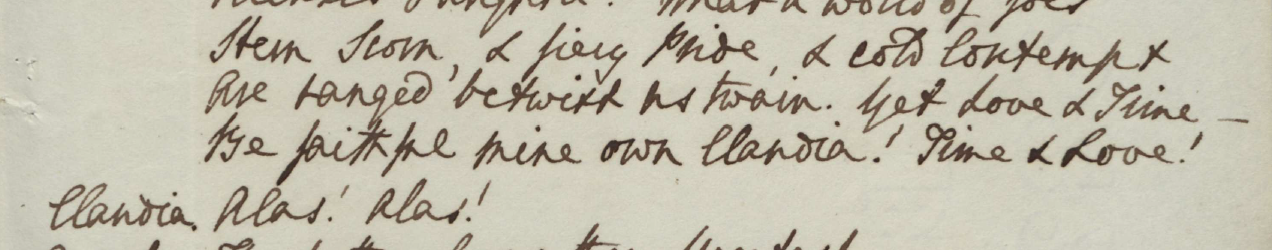 What a world of foes
Stern Scorn, & fiery Pride, & cold Contempt
Are ranged betwixt us twain. Yet Love & Time –
Be faithful mine own Claudia! Time & Love!
Claudia. Alas! Alas!